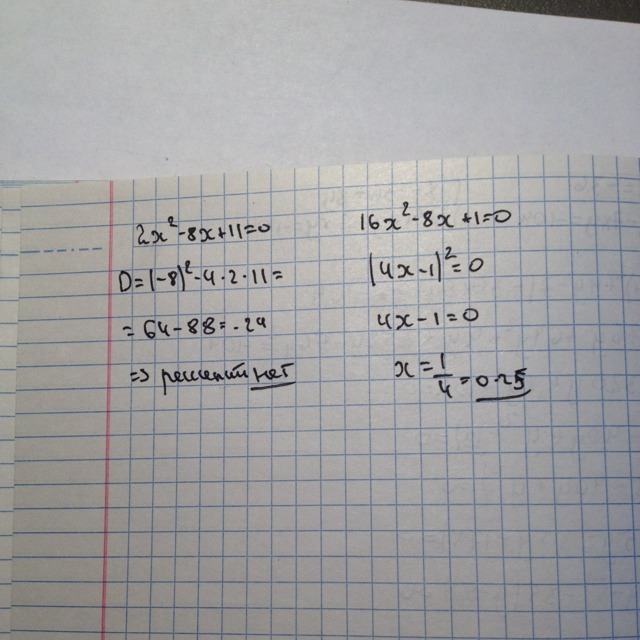 2x²-8x+11=0
D=(-8)²-4·2·11=
=64-88=-24
=> решений нет
16x²-8x+1=0
(4x-1)²=0
4x-1=0
x=1/4=0.25